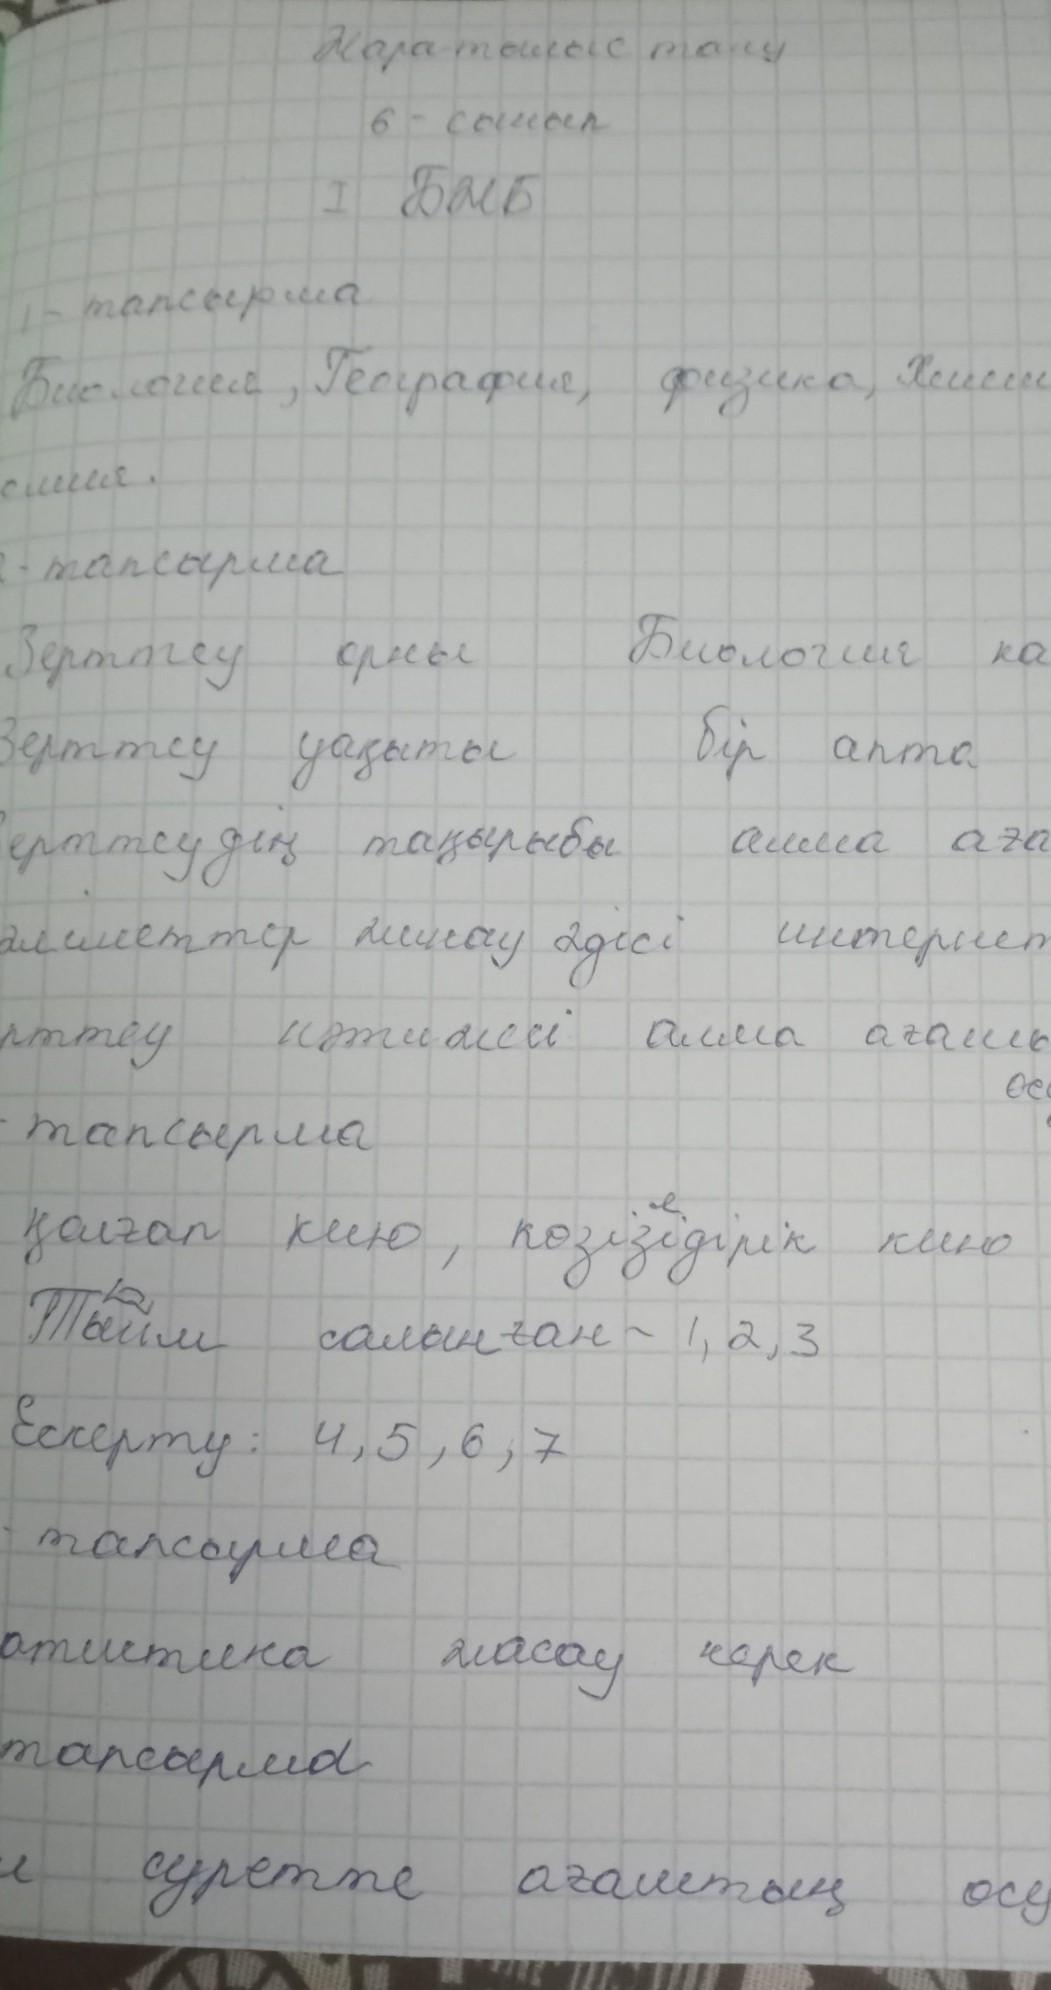 Жаратылыс тану
6 - сынып
I БЖБ
1 - тапсырма
Биология, География, физика, Хими
омия.
2 - тапсырма
Зерттеу орны Биология ка
Зерттеу уақыты бір апта
Зерттеудің тақырыбы алма аға
әліметтер жинау әдісі интернет
рттеу нәтижесі алма ағашы
өсу
- тапсырма
қолғап кию, көзізідірік кию
Тыйм салынған - 1, 2, 3
Ескерту: 4, 5, 6, 7
- тапсырма
атистика жасау керек
тапсырма
суретте ағаштың өсу